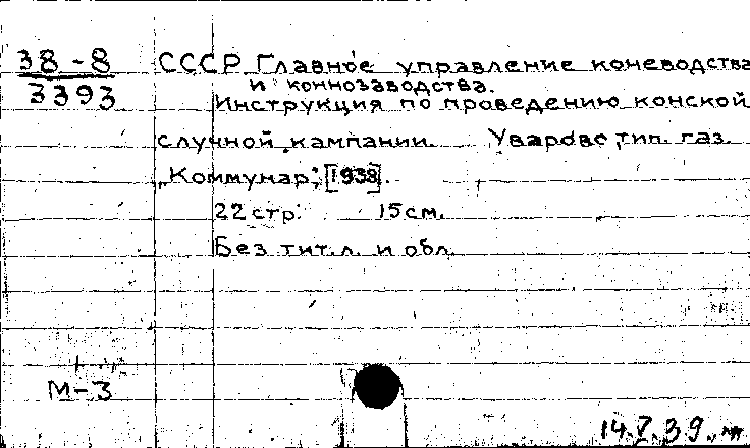 38-8
3393
СССР Главное управление коневодства
и коннозаводства.
Инструкция по проведению конской
случной кампании. Уварово, тип. газ.
„Коммунар", [1938].
22 стр. 15 см.
Без тит. л. и обл.
М-3
14.7.39.